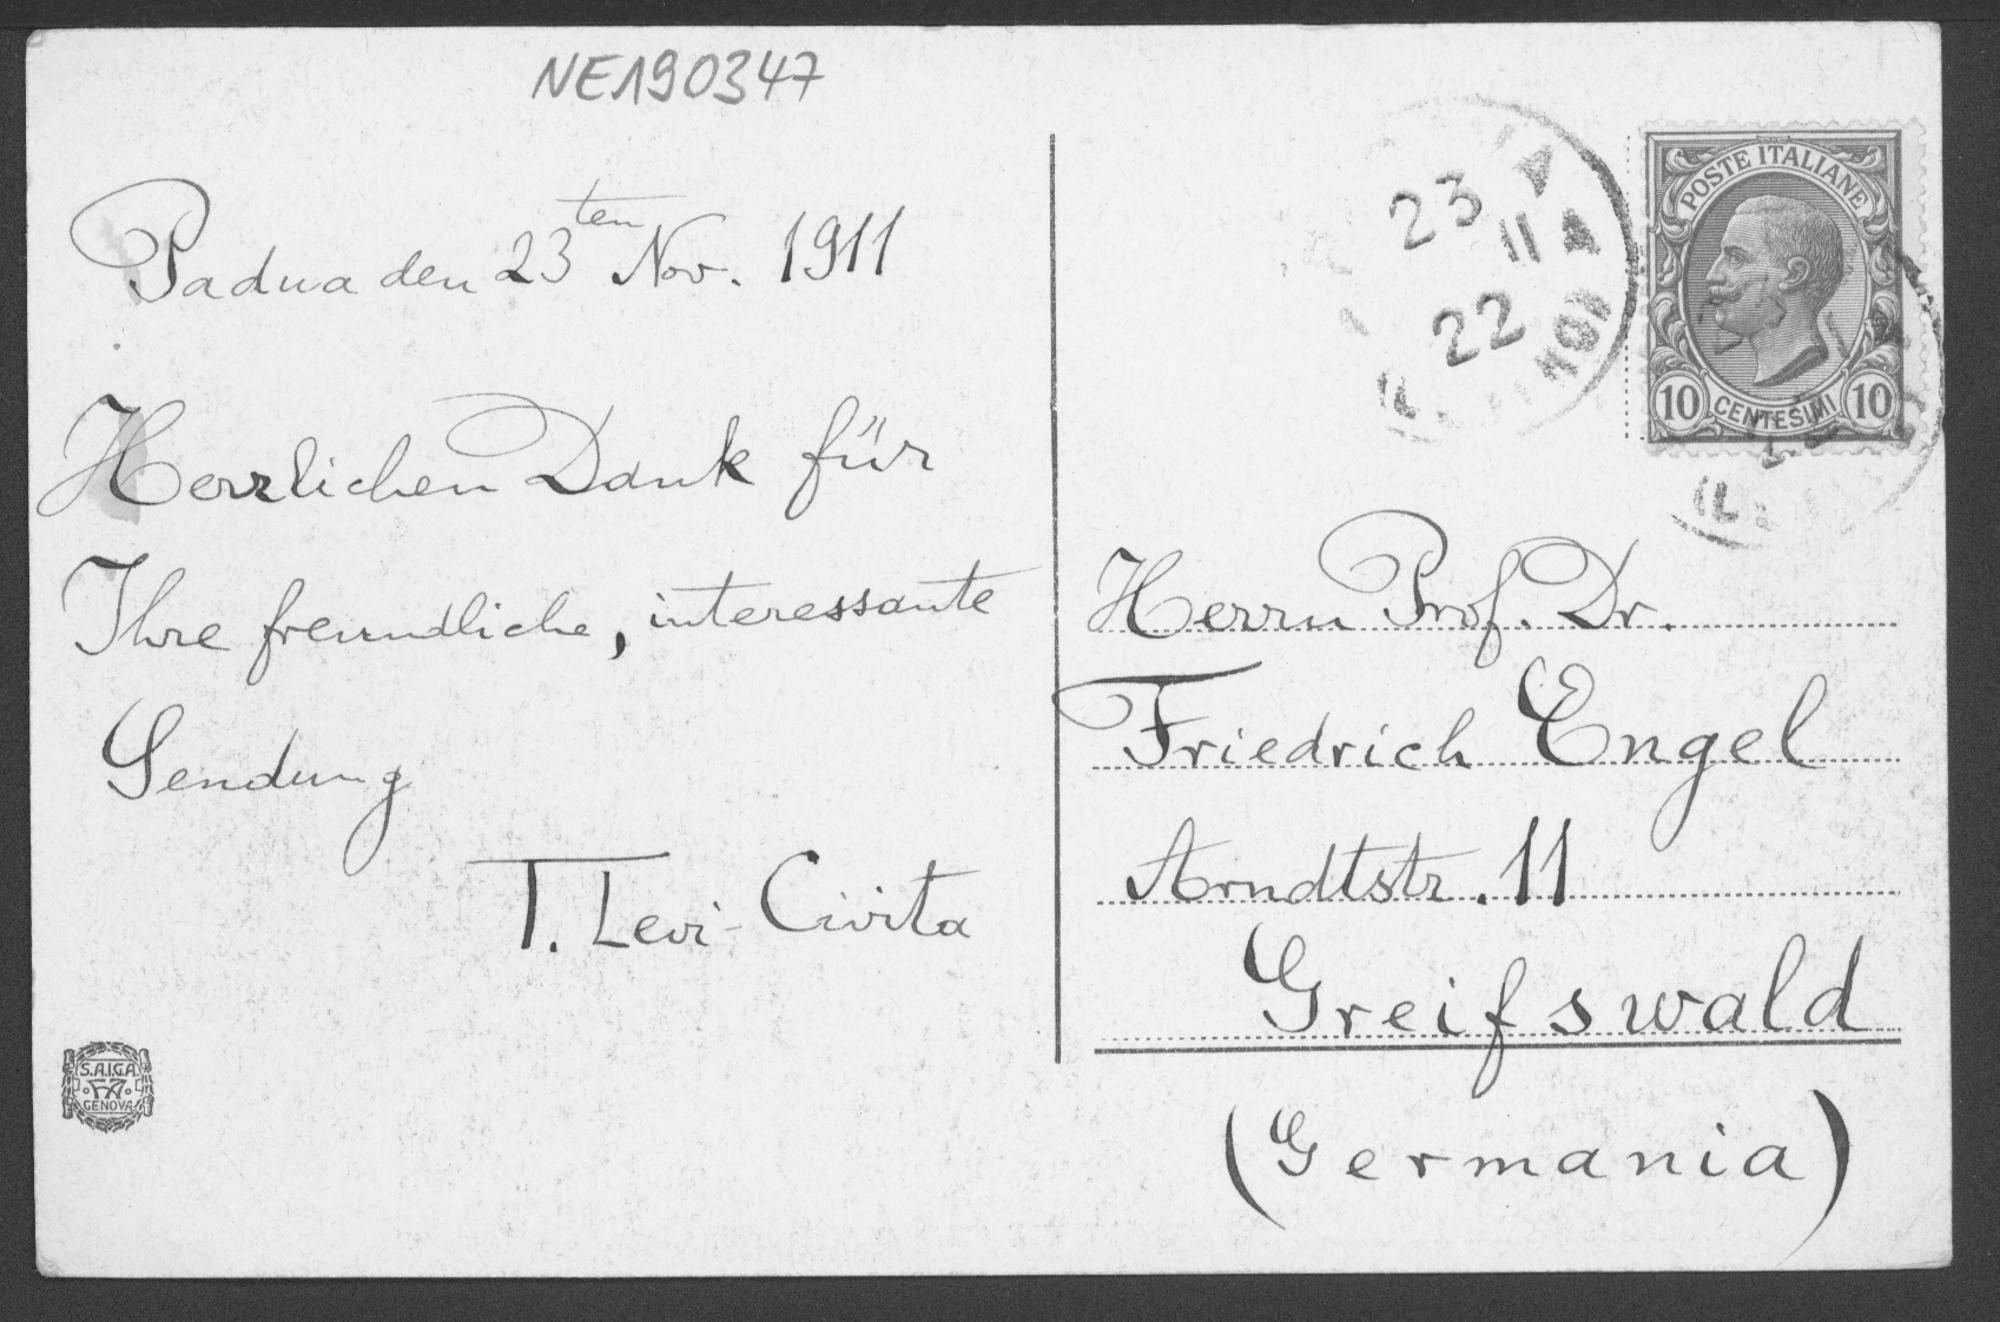 NE190347
Padua den 23ten Nov. 1911
Herzlichen Dank für
Ihre freundliche, interessante
Sendung
T. Levi-Civita
S.A.I.G.A.
GENOVA
23 11
22
POSTE ITALIANE
10 CENTESIMI 10
Herrn Prof. Dr.
Friedrich Engel
Arndtstr. 11
Greifswald
(Germania)